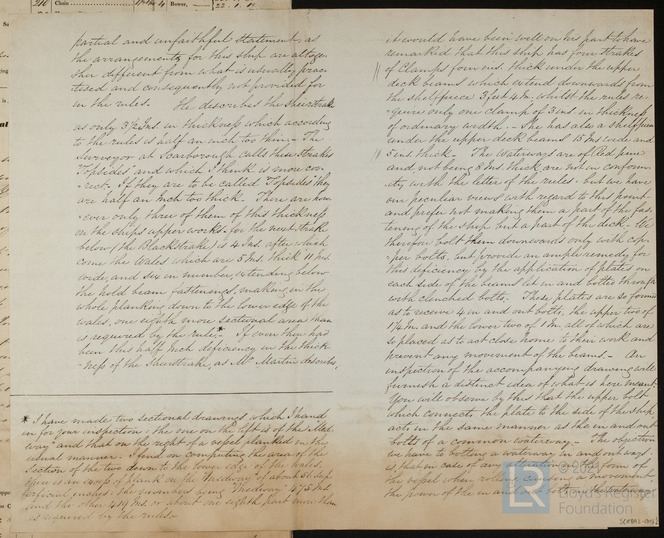 partial and unfaithful statement, as
the arrangements for this ship are altoge-
ther different from what is usually prac-
tised and consequently not provided for
in the rules. He describes the Sheerstrake
as only 3½ Ins. in thickness which according
to the rules is half an inch too thin — The
Surveyor at Scarborough calls these strakes
Topsides and which I think is more cor-
-rect. If they are to be called Topsides they
are half an inch too thick. There are how-
-ever only three of them of this thickness
on the ships upper works. for the next strake
below (the Blackstrake) is 4 Ins. after which
come the Wales which are 5 Ins. thick 11 Ins.
wide, and six in number, extending below
the hold beam fastenings, making, in the
whole planking down to the lower edge of the
wales, one eighth more sectional area than
is required by the rules* If even there had
been this half inch deficiency in the thick-
-ness of the Sheerstrake, as Mr Martin describes,
* I have made two sectional drawings which I hand
in for your inspection, the one on the left is of the
and that on the right of a vessel planked in the
usual manner. I find on computing the area of the
section of the two down to the lower edge of the wales,
there is in of plank in the of about
the
and the other 419 Ins. or about one eighth part more than
is required by the rules.
it would have been well on his part to have
remarked that this ship has four strakes
of Clamps four ins. thick under the upper
deck beams which extend downwards from
the shelfpiece 3 feet 4 In. whilst the rules re-
quire only one clamp of 3 ins in thickness
of ordinary width. — She has also a shelfpiece
under the upper deck beams 15 Ins wide and
5 ins thick — The Waterways are of Red pine
and not being 5 Ins. thick are not in conform-
ity with the letter of the rules — but we have
our peculiar views with regard to this point
and prefer not making them a part of the fas-
tening of the ship but a part of the deck. We
therefore bolt them downwards only with cop-
-per bolts, but provide an ample remedy for
this deficiency by the application of plates on
each side of the beams let in and bolted through
with clenched bolts. These plates are so formed
as to receive 4 in and out bolts, the upper two of
1⅛ In. and the lower two of 1 In. all of which are
so placed as to act close home to their work and
prevent any movement of the beams — An
inspection of the accompanying drawing will
furnish a distinct idea of what is here meant.
You will observe by this that the upper bolt
which connects the plate to the side of the ship
acts in the same manner as the in and out
bolts of a common waterway — The objection
we have to bolting a waterway in and out ways
is, that in case of any alteration in the form of
the vessel when rolling a movement,
the power of the in and out bolts
© 2021
LR
Lloyd's Register
Foundation